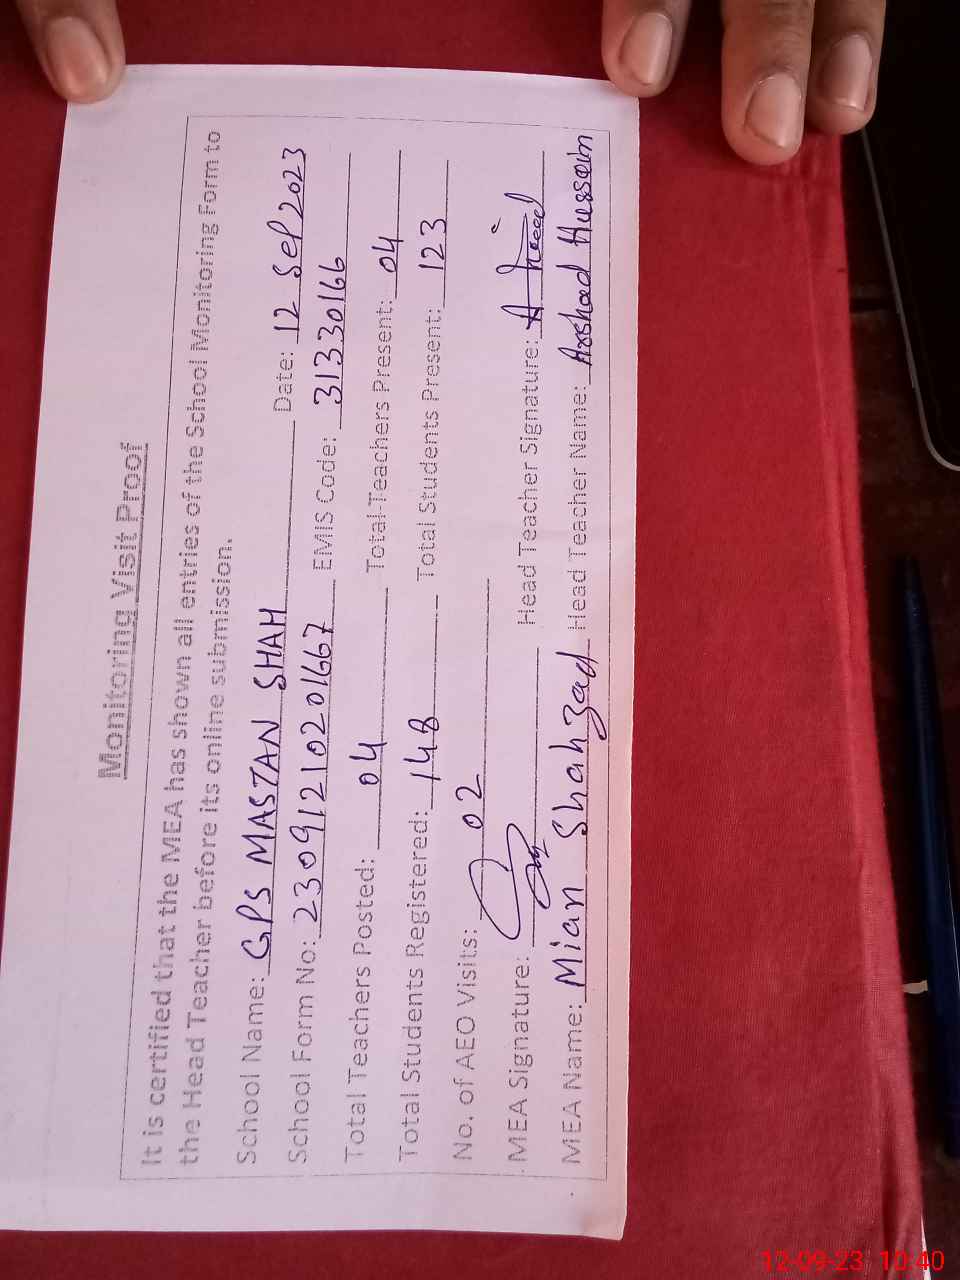 Monitoring Visit Proof
It is certified that the MEA has shown all entries of the School Monitoring Form to
the Head Teacher before its online submission.
School Name: GPS MASTAN SHAH Date: 12 Sep 2023
School Form No: 23091210201667 EMIS Code: 31330166
Total Teachers Posted: 04 Total Teachers Present: 04
Total Students Registered: 148 Total Students Present: 123
No. of AEO Visits: 02
MEA Signature: Head Teacher Signature:
MEA Name: Mian Shahzad Head Teacher Name: Arshad Hussain
12-09-23 10:40